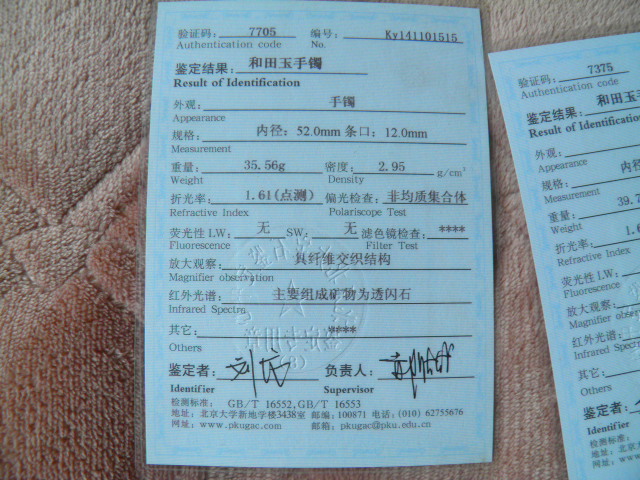 验证码: 7705 编号: Ky141101515
Authentication code No.
鉴定结果: 和田玉手镯
Result of Identification
外观: 手镯
Appearance
规格: 内径: 52.0mm 条口: 12.0mm
Measurement
重量: 35.56g 密度: 2.95 g/cm³
Weight Density
折光率: 1.61(点测) 偏光检查: 非均质集合体
Refractive Index Polariscope Test
荧光性 LW: 无 SW: 无 滤色镜检查: ****
Fluorescence Filter Test
放大观察: 具纤维交织结构
Magnifier observation
红外光谱: 主要组成矿物为透闪石
Infrared Spectra
其它: ****
Others
鉴定者: 负责人:
Identifier Supervisor
检测标准: GB/T 16552,GB/T 16553
地址: 北京大学新地学楼3438室 邮编: 100871 电话: (010) 62755676
网址: www.pkugac.com 邮箱: pkugac@pku.edu.cn
验证码: 7375
Authentication code
鉴定结果: 和田玉手
Result of Identification
外观:
Appearance
规格: 内径
Measurement
重量: 39.7
Weight
折光率: 1.6
Refractive Index
荧光性 LW:
Fluorescence
放大观察:
Magnifier obser
红外光谱:
Infrared Spectr
其它:
Others
鉴定者:
Identifier
检测标准:
地址: 北
网址: ww